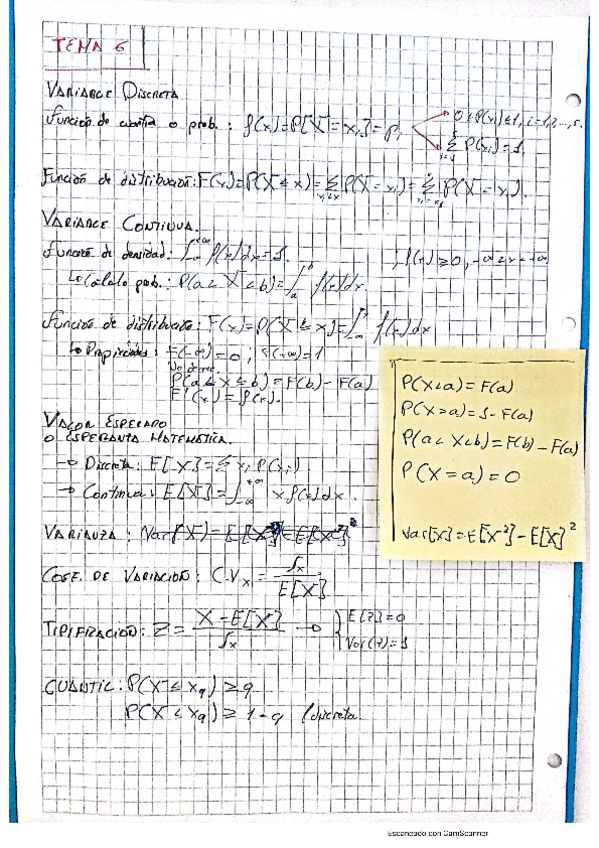 TEMA 6
VARIABLE DISCRETA
función de cuantía o prob.: f(x)=P[X=xᵢ]=pᵢ
0≤P(xᵢ)≤1, i=1,2,...,r.
Σ P(xᵢ)=1.
función de distribución: F(x)=P(X≤x)=Σ P(X=xᵢ)=Σ P(X=xᵢ).
VARIABLE CONTINUA.
función de densidad: ∫f(x)dx=1. ; f(x)≥0, -∞<x<+∞
↳ Cálculo prob.: P(a<X<b)=∫ₐᵇ f(x)dx.
función de distribución: F(x)=P(X≤x)=∫f(x)dx
↳ Propiedades: F(-∞)=0; F(+∞)=1
No decrec.
P(a<X≤b)=F(b)-F(a)
F'(x)=f(x).
VALOR ESPERADO
O ESPERANZA MATEMÁTICA.
→ Discreta: E[X]=Σxᵢ P(xᵢ)
→ Continua: E[X]=∫x f(x)dx.
VARIANZA:
COEF. DE VARIACIÓN: C.Vₓ=Sₓ/E[X]
TIPIFICACIÓN: Z=X-E[X]/Sₓ → {E[Z]=0
Var(Z)=1
CUANTIL: P(X≤x_q)≥q
1-q (discreta
P(X<a)=F(a)
P(X>a)=1-F(a)
P(a<X<b)=F(b)-F(a)
P(X=a)=0
Var[X]=E[X²]-E[X]²
Escaneado con CamScanner